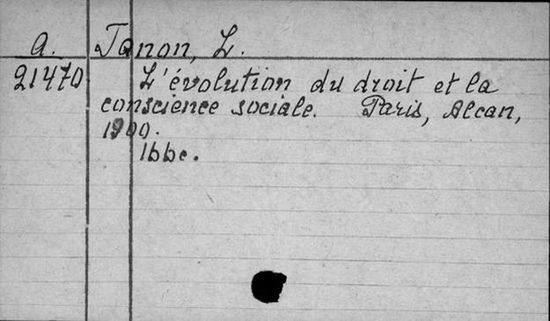 A. Tanon, L.
21470 L'évolution du droit et la
conscience sociale. Paris, Alcan,
1900.
166c.